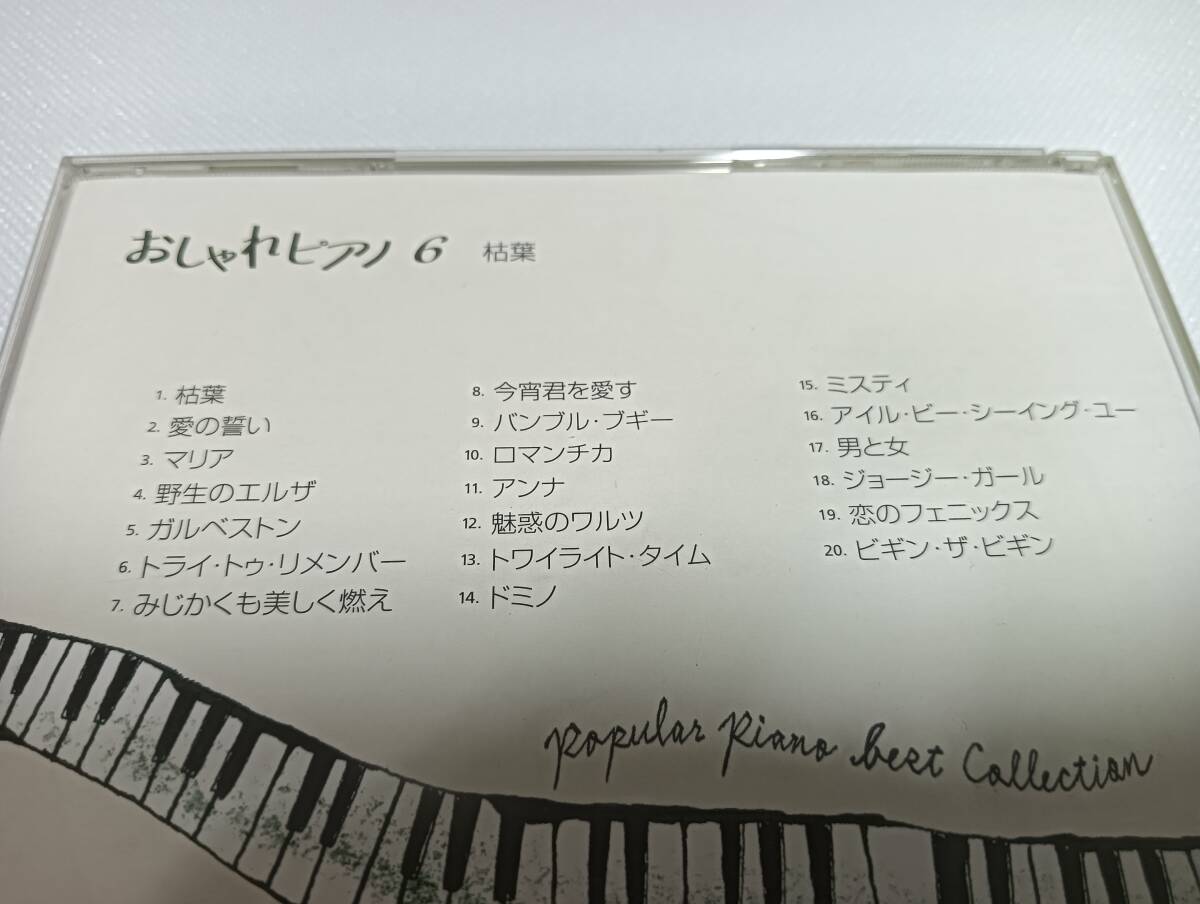 おしゃれピアノ 6 枯葉
1. 枯葉
2. 愛の誓い
3. マリア
4. 野生のエルザ
5. ガルベストン
6. トライ・トゥ・リメンバー
7. みじかくも美しく燃え
8. 今宵君を愛す
9. バンブル・ブギー
10. ロマンチカ
11. アンナ
12. 魅惑のワルツ
13. トワイライト・タイム
14. ドミノ
15. ミスティ
16. アイル・ビー・シーイング・ユー
17. 男と女
18. ジョージー・ガール
19. 恋のフェニックス
20. ビギン・ザ・ビギン
Popular Piano best Collection